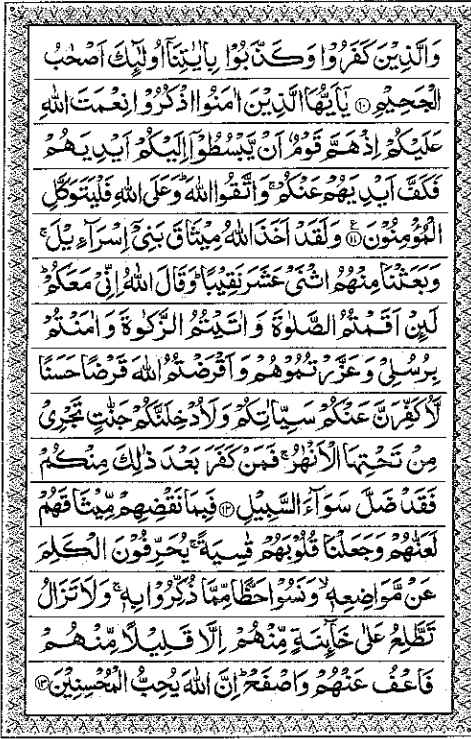 وَالَّذِيْنَ كَفَرُوْا وَكَذَّبُوْا بِاٰيٰتِنَاۤ اُولٰٓئِكَ اَصْحٰبُ
الْجَحِيْمِ ۝۱۰ يٰۤاَيُّهَا الَّذِيْنَ اٰمَنُوا اذْكُرُوْا نِعْمَتَ اللّٰهِ
عَلَيْكُمْ اِذْ هَمَّ قَوْمٌ اَنْ يَّبْسُطُوْۤا اِلَيْكُمْ اَيْدِيَهُمْ
فَكَفَّ اَيْدِيَهُمْ عَنْكُمْ ۚ وَاتَّقُوا اللّٰهَ ؕ وَعَلَى اللّٰهِ فَلْيَتَوَكَّلِ
الْمُؤْمِنُوْنَ ۝۱۱ ع وَلَقَدْ اَخَذَ اللّٰهُ مِيْثَاقَ بَنِيْۤ اِسْرَآءِيْلَ ۚ
وَبَعَثْنَا مِنْهُمُ اثْنَيْ عَشَرَ نَقِيْبًا ؕ وَقَالَ اللّٰهُ اِنِّيْ مَعَكُمْ ؕ
لَئِنْ اَقَمْتُمُ الصَّلٰوةَ وَاٰتَيْتُمُ الزَّكٰوةَ وَاٰمَنْتُمْ
بِرُسُلِيْ وَعَزَّرْتُمُوْهُمْ وَاَقْرَضْتُمُ اللّٰهَ قَرْضًا حَسَنًا
لَّاُكَفِّرَنَّ عَنْكُمْ سَيِّاٰتِكُمْ وَلَاُدْخِلَنَّكُمْ جَنّٰتٍ تَجْرِيْ
مِنْ تَحْتِهَا الْاَنْهٰرُ ۚ فَمَنْ كَفَرَ بَعْدَ ذٰلِكَ مِنْكُمْ
فَقَدْ ضَلَّ سَوَآءَ السَّبِيْلِ ۝۱۲ فَبِمَا نَقْضِهِمْ مِّيْثَاقَهُمْ
لَعَنّٰهُمْ وَجَعَلْنَا قُلُوْبَهُمْ قٰسِيَةً ۚ يُحَرِّفُوْنَ الْكَلِمَ
عَنْ مَّوَاضِعِهٖ ۙ وَنَسُوْا حَظًّا مِّمَّا ذُكِّرُوْا بِهٖ ۚ وَلَا تَزَالُ
تَطَّلِعُ عَلٰى خَآئِنَةٍ مِّنْهُمْ اِلَّا قَلِيْلًا مِّنْهُمْ
فَاعْفُ عَنْهُمْ وَاصْفَحْ ؕ اِنَّ اللّٰهَ يُحِبُّ الْمُحْسِنِيْنَ ۝۱۳